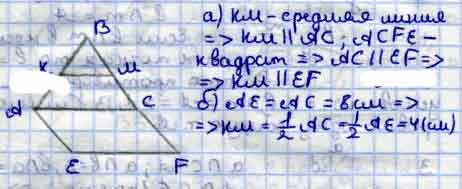 B
K
M
A
C
E
F
а) KM - средняя линия
=> KM || AC; ACFE -
квадрат => AC || EF =>
=> KM || EF
б) AE = AC = 8 см =>
=> KM = 1/2 AC = 1/2 AE = 4 (см)